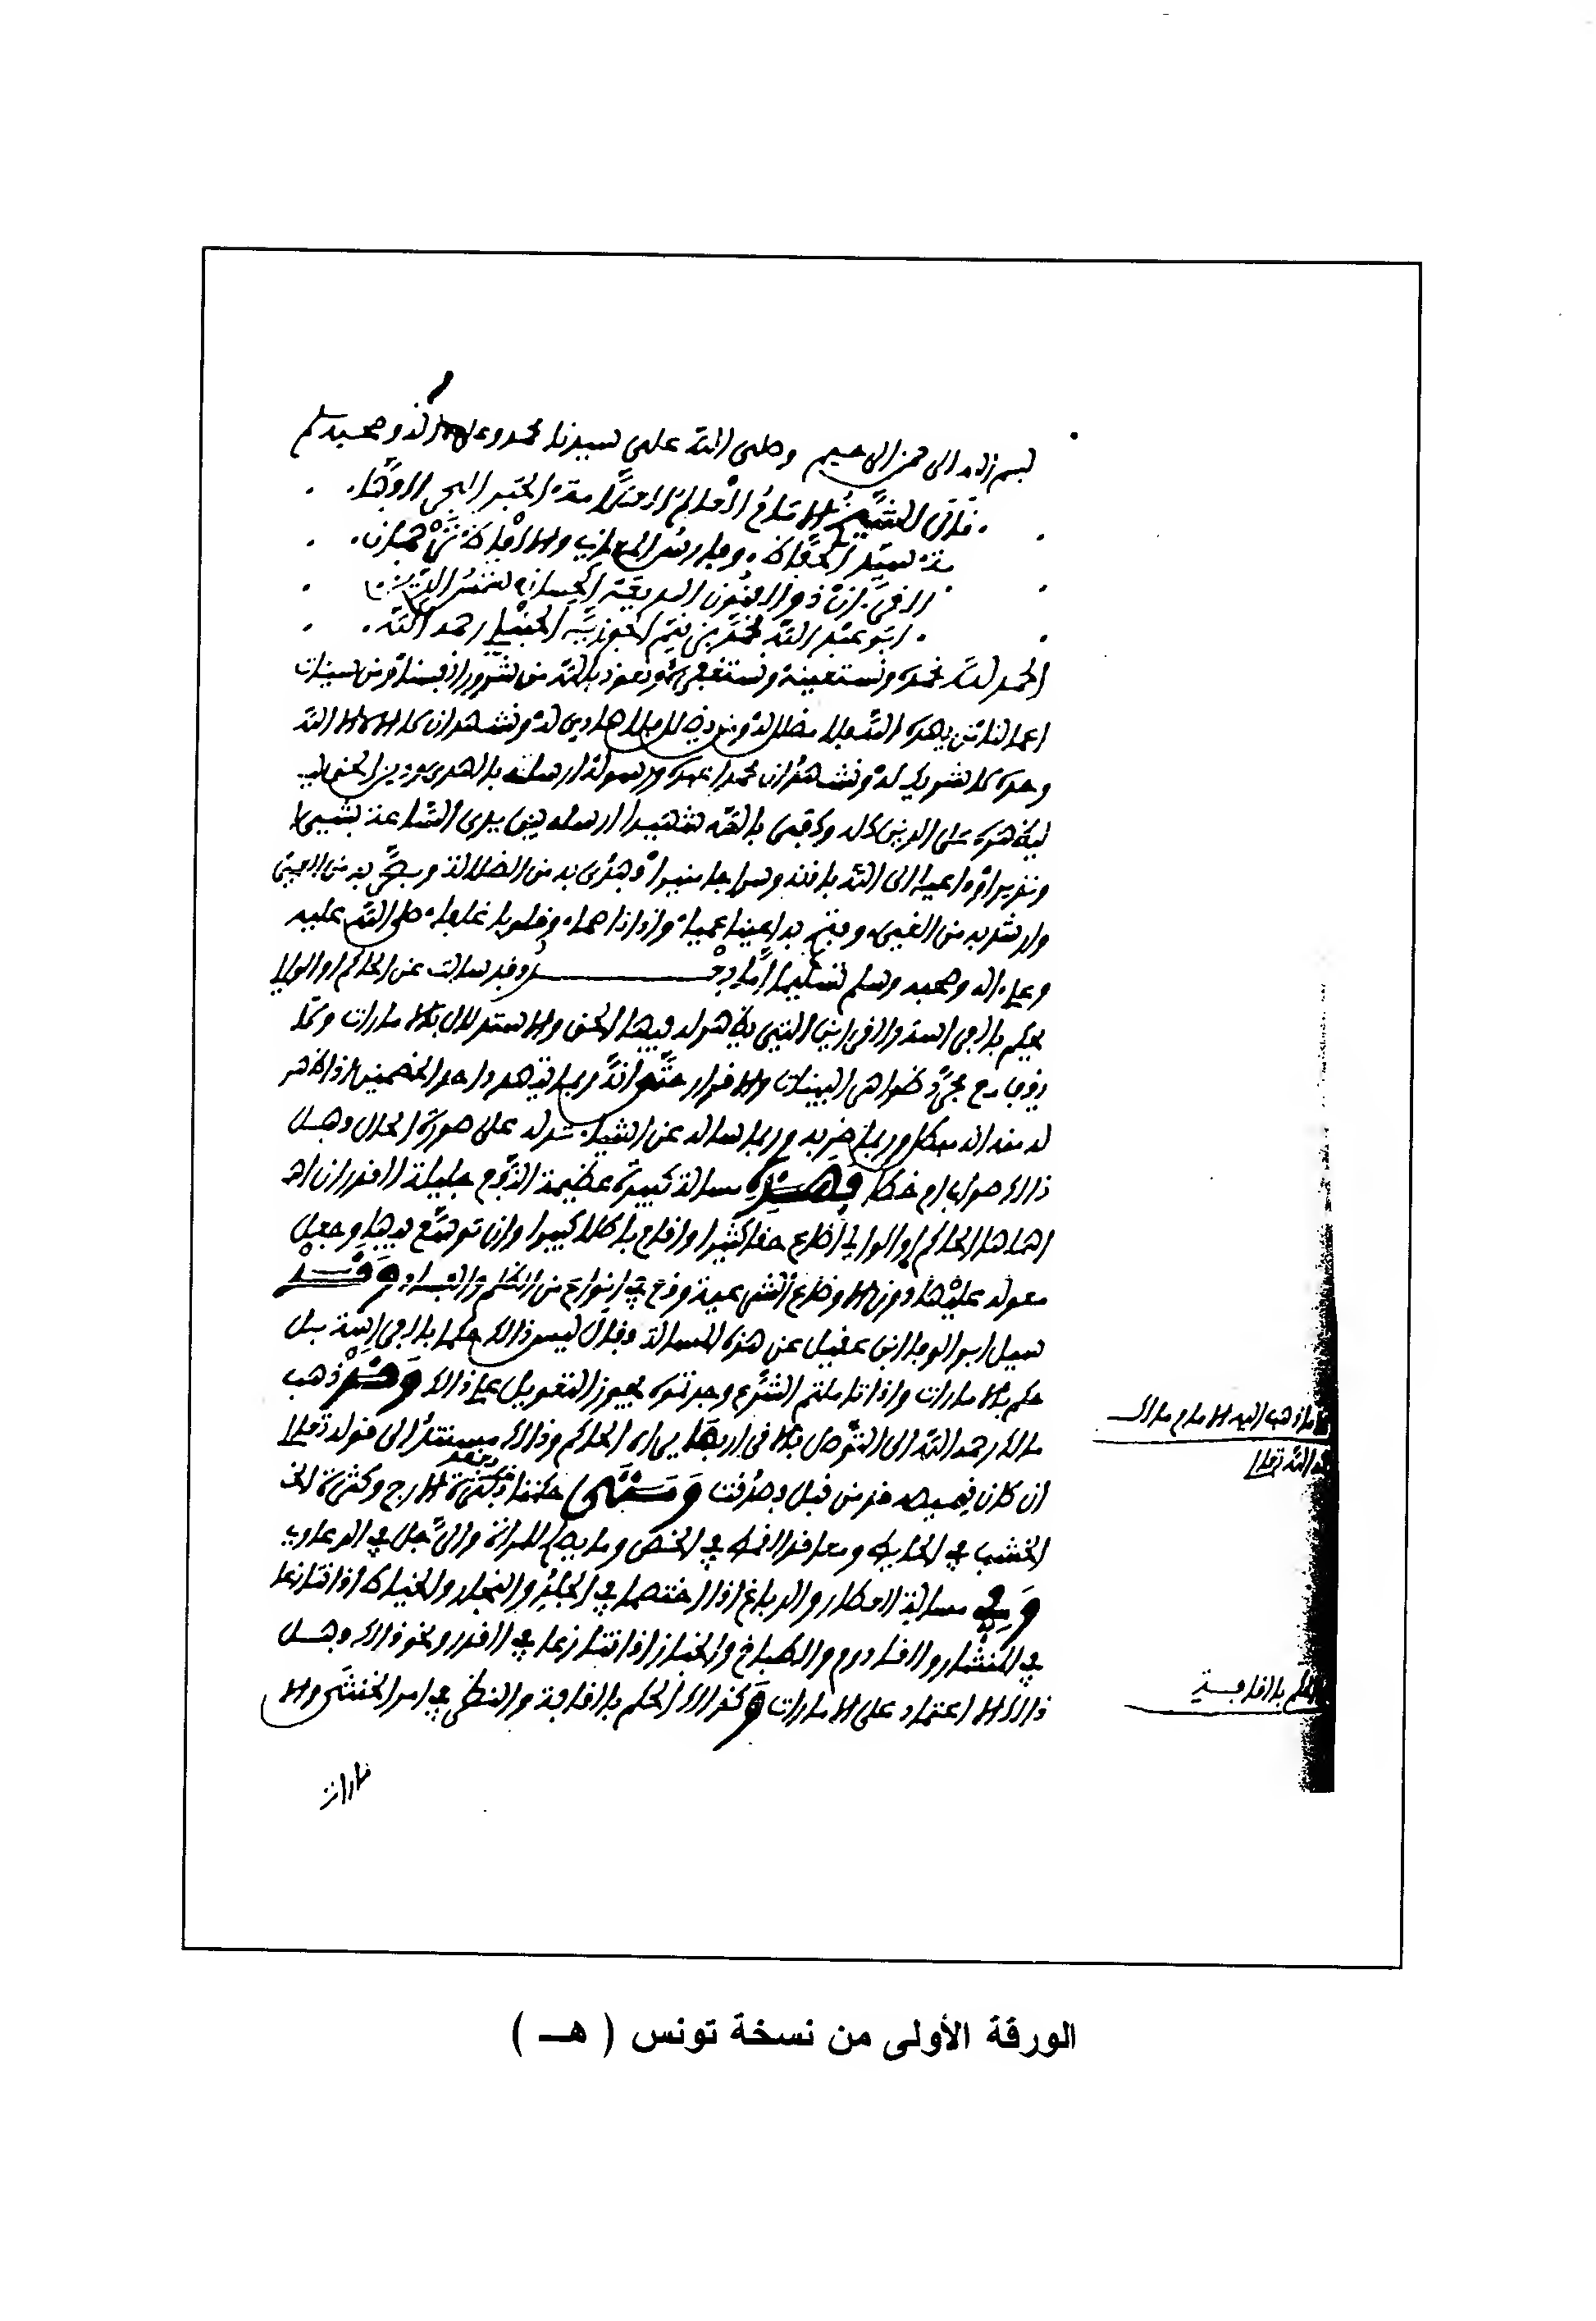 بسم الله الرحمن الرحيم وصلى الله على سيدنا محمد وعلى اله وصحبه وسلم
قال الشيخ الامام العالم العلامة الحبر البحر
سيد الحفاظ وفارس المعاني والالفاظ ترجمان
القرءان ذو الفنون البديعة الحسان شمس الدين
ابو عبد الله محمد بن قيم الجوزية الحنبلي رحمه الله
الحمد لله نحمده ونستعينه ونستغفره ونعوذ بالله من شرور انفسنا ومن سيئات
اعمالنا من يهده الله فلا مضل له ومن يضلل فلا هادي له ونشهد ان لا اله الا الله
وحده لا شريك له ونشهد ان محمدا عبده ورسوله ارسله بالهدى ودين الحق
ليظهره على الدين كله وكفى بالله شهيدا ارسله بين يدي الساعة بشيرا
ونذيرا وداعيا الى الله باذنه وسراجا منيرا وهدى به من الضلالة وبصر به من العمى
وارشد به من الغي وفتح به اعينا عميا واذانا صما وقلوبا غلفا صلى الله عليه
وعلى اله وصحبه وسلم تسليما اما بعد فقد سالت عن الحاكم او الوالي
يحكم بالفراسة والقراين التي يظهر له فيها الحق والاستدلال بالامارات ولا
يقف مع مجرد ظواهر البينات والاقرار حتى انه ربما يتهدد احد الخصمين اذا ظهر
له منه انه مبطل وربما ضربه وربما ساله عن اشياء تدله على صورة الحال وهل
ذالك صواب ام خطا فهذه مسالة كبيرة عظيمة النفع جليلة القدر ان
اهملها الحاكم او الوالي اضاع حقا كثيرا واقام باطلا كبيرا وان توسع فيها وجعل
معوله عليها دون الاوضاع الشرعية وقع في انواع من الظلم والفساد وقد
سيل ابو الوفا ابن عقيل عن هذه المسالة فقال ليس ذالك حكما بالفراسة بل
حكم بالامارات واذا تاملتم الشرع وجدتموه يجوز التعويل على ذالك وقد ذهب
مالك رحمه الله الى التوصل بالاقرار بما يراه الحاكم وذالك مستندا الى قوله تعالى
ان كان قميصه قد من قبل فصدقت ومتى حكمنا بعقد الازج وكثرة
الخشب في الحايط ومعاقد القمط في الخص وما يصلح للمراة والرجل في الدعاوي
وفي مسالة العطار والدباغ اذا اختصما في الجلد والنجار والخياط اذا تنازعا
في المنشار والقادوم والطباخ والخباز اذا تنازعا في القدر ونحو ذالك وهل
ذالك الا اعتماد على الامارات وكذالك الحكم بالقافة والنظر في امر الخنثى والا
مارات
ما ذهب اليه الامام مالك
رحمه الله تعالى
الحكم بالقافة
الورقة الأولى من نسخة تونس ( هـ )